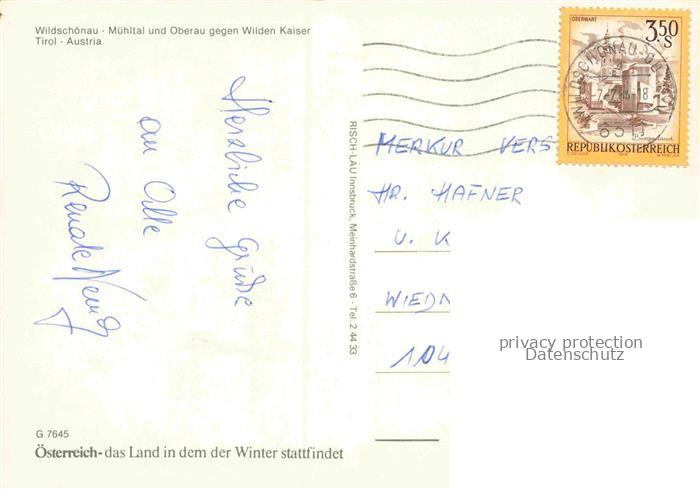 Wildschönau - Mühltal und Oberau gegen Wilden Kaiser
Tirol - Austria
Herzliche Grüße
an Alle
Renate
G 7645
Österreich- das Land in dem der Winter stattfindet
RISCH-LAU Innsbruck, Meinhardstraße 6 - Tel. 2 44 33
OBERWART
3.50
S
Burgenland
REPUBLIK ÖSTERREICH
MERKUR VERS
HR. HAFNER
U. K
WIEDN
104
privacy protection
Datenschutz